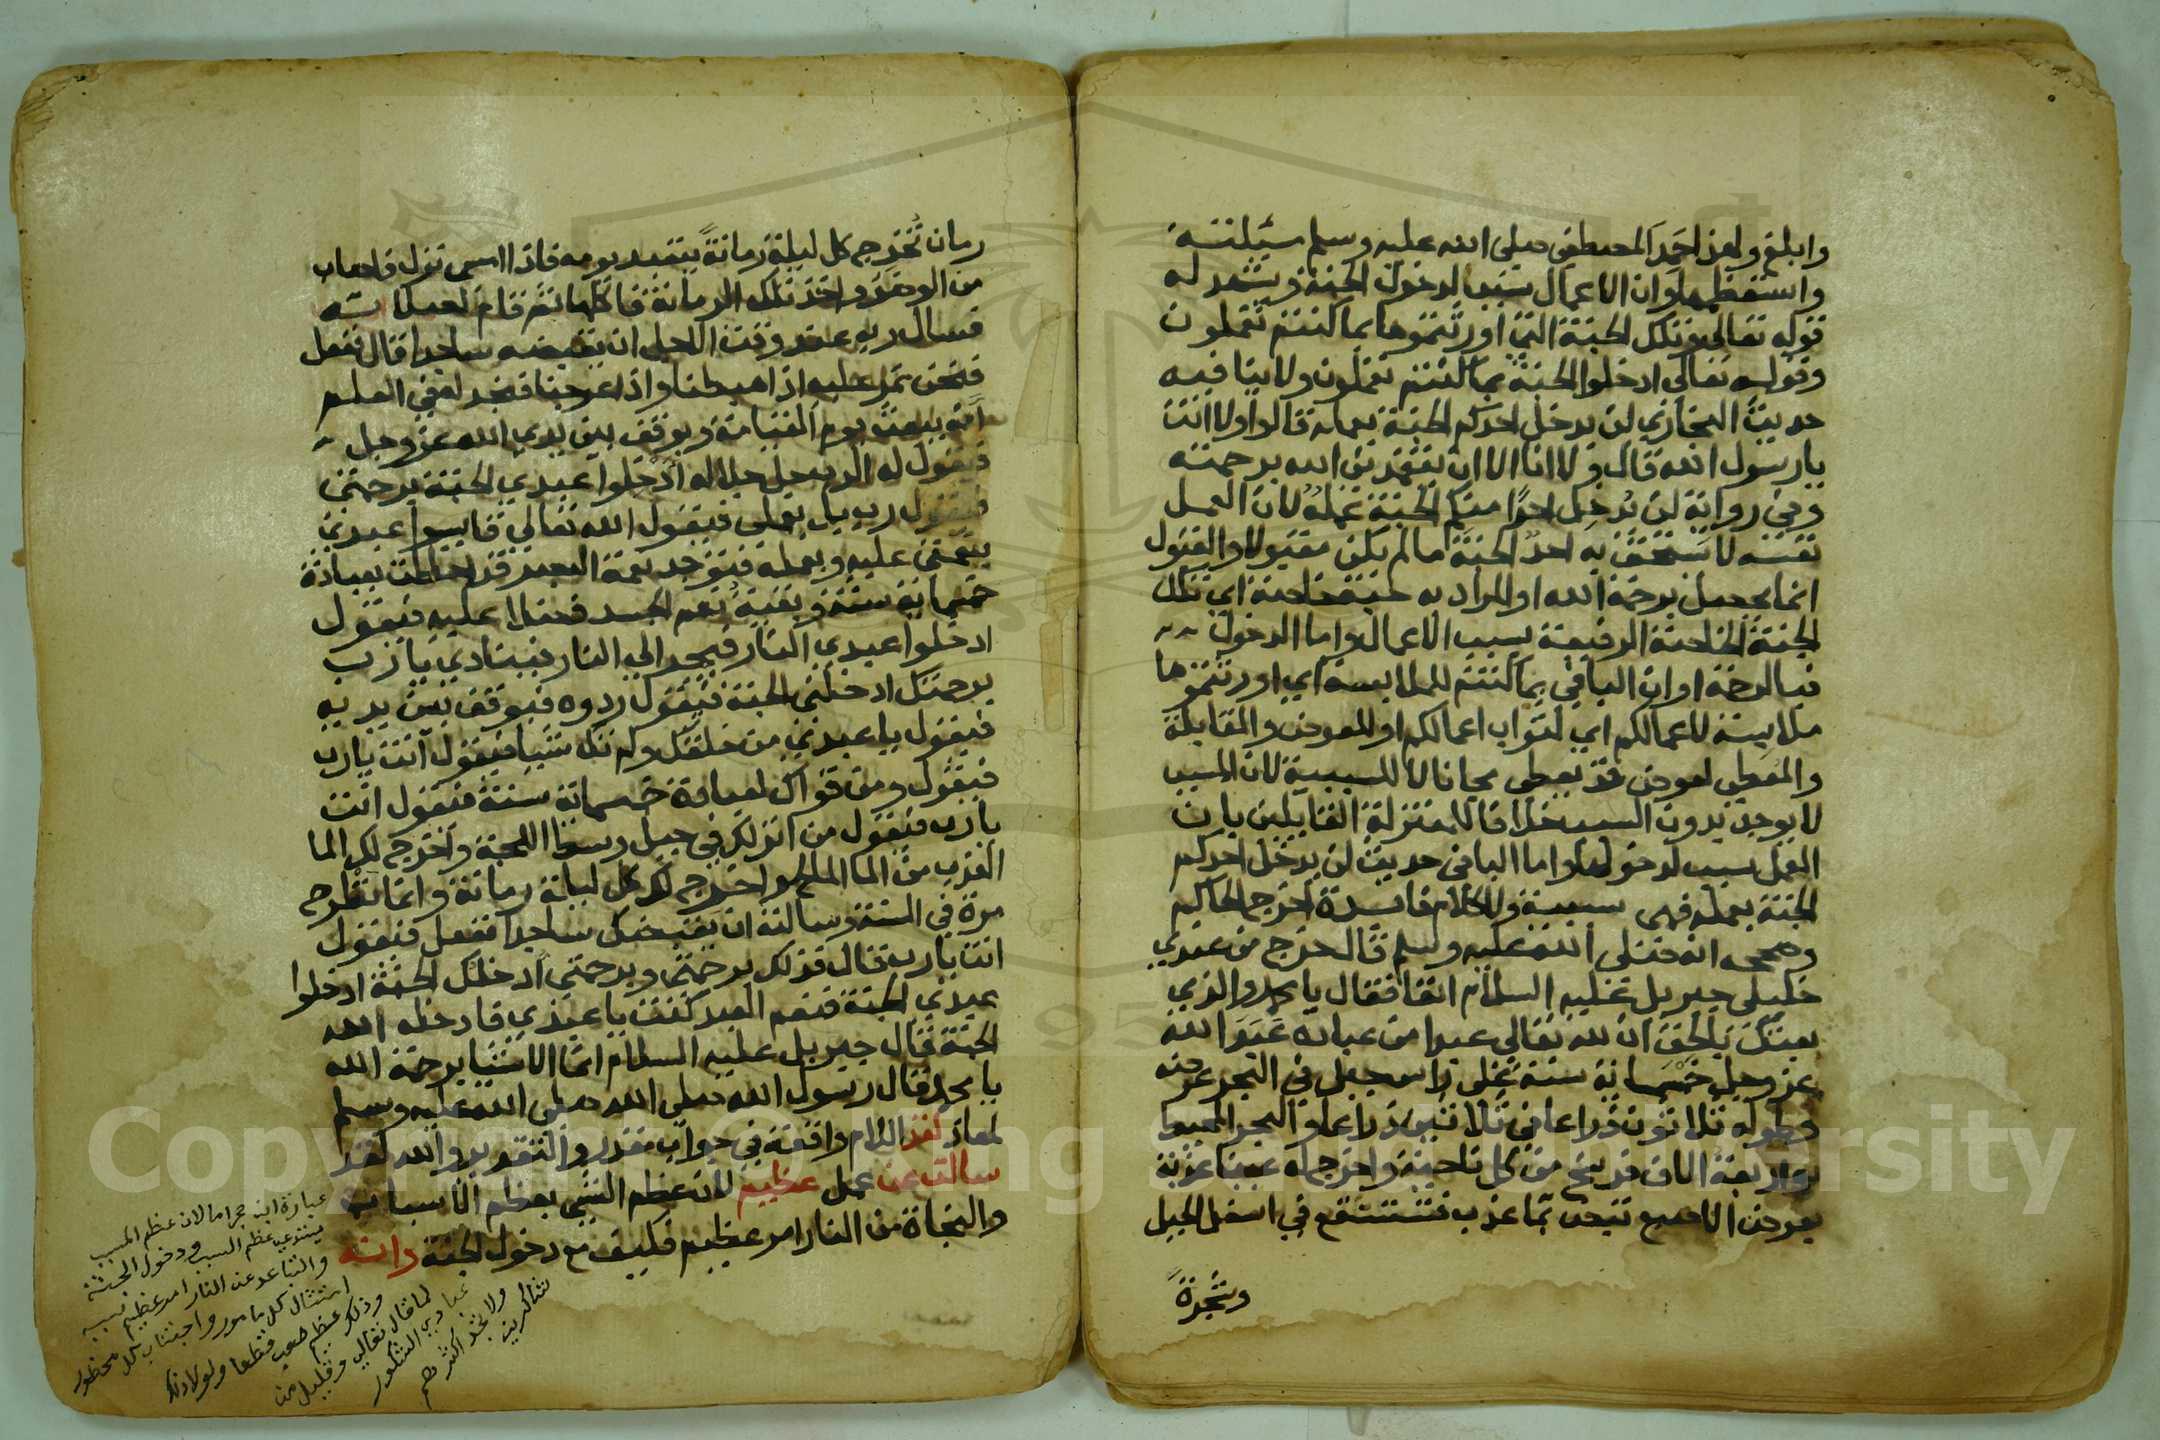 وابلغ ولهذا حمد المصطفى صلى الله عليه وسلم مسئيلته
واستعظمها وان الاعمال سبب لدخول الجنة ويشهد له
قوله تعالى وتلك الجنة التي اورثتموها بما كنتم تعملون
وقوله تعالى ادخلوا الجنة بما كنتم تعملون ولا ينافيه
حديث البخاري لن يدخل احدكم الجنة بعمله قالوا ولا انت
يا رسول الله قال ولا انا الا ان يتغمدني الله برحمته
وفي رواية لن يدخل احدا منكم الجنة عمله لان العمل
نفسه لا يستحق به احد الجنة ما لم يكن مقبولا والقبول
انما يحصل برحمة الله او المراد به جنة خاصة اي تلك
الجنة الخاصة الرفيعة بسبب الاعمال واما الدخول
فبالرحمة او ان الباقي بما كنتم للملابسة اي اورثتموها
ملابسة لاعمالكم اي لثواب اعمالكم او للعوض والمقابلة
والمعطي لعوض قد يعطى مجانا لا للسببية لان المسبب
لا يوجد بدون السبب خلافا للمعتزلة القايلين بان
العمل سبب لدخولها واما البافي حديث لن يدخل احدكم
الجنة بعمله فهي سببية وللكلام فايدة اخرج الحاكم
وصححه انه صلى الله عليه وسلم قال خرج من عندي
خليلي جبريل عليه السلام انفا فقال يا محمد والذي
بعثك بالحق ان لله تعالى عبدا من عباده عبد الله
عز وجل خمسماية سنة على راس جبل في البحر عرضه
وطوله ثلاثون ذراعا في ثلاثين ذراعا والبحر المحيط
به اربعة الاف فرسخ من كل ناحية واخرج له عينا عذبة
بعرض الاصبع تبض بما عذب فتستنقع في اسفل الجبل
وشجرة
رمان تخرج كل ليلة رمانة يتعبد يومه فاذا امسى نزل فاصاب
من الوضوء واخذ تلك الرمانة فاكلها ثم قام لصلاته
فسال ربه عند وقت الاجل ان يقبضه ساجدا قال ففعل
فنحن نمر عليه اذا هبطنا واذا عرجنا فنجد له في العلم
انه يبعث يوم القيامة ويوقف بين يدي الله عز وجل
فيقول له الرب جل جلاله ادخلوا عبدي الجنة برحمتي
فيقول رب بل بعملي فيقول الله تعالى قايسوا عبدي
بنعمتي عليه وبعمله فتوجد نعمة البصر قد احاطت بعبادة
خمسماية سنة وبقية نعم الجسد فضلا عليه فيقول
ادخلوا عبدي النار فيجر الى النار فينادي يا رب
برحمتك ادخلني الجنة فيقول ردوه فيوقف بين يديه
فيقول يا عبدي من خلقك ولم تك شيا فيقول انت يا رب
فيقول ومن قواك لعبادة خمسماية سنة فيقول انت
يا رب فيقول من انزلك في جبل وسط اللجة واخرج لك الما
العذب من الما المالح واخرج لك كل ليلة رمانة وانما تخرج
مرة في السنة وسالته ان يقبضك ساجدا ففعل فيقول
انت يا رب قال فذلك برحمتي وبرحمتي ادخلك الجنة ادخلوا
عبدي الجنة فنعم العبد كنت يا عبدي فادخله الله
الجنة قال جبريل عليه السلام انما الاشيا برحمة الله
يا محمد فقال رسول الله صلى الله عليه وسلم
لمعاذ لقد اللام واقعة في جواب مقدر والتقدير والله لقد
سالت عن عمل عظيم لان عظم الشي بعظم الاسباب
والنجاة من النار امر عظيم فكيف مع دخول الجنة وانه
عبارة ابن حجر اما لان عظم المسبب
يستدعي عظم السبب ودخول الجنة
والتباعد عن النار امر عظيم سببه
امتثال كل مامور واجتناب كل محظور
وذلك عظيم صعب قطعا ولولا ذلك
لما قال تعالى وقليل من
عبادي الشكور
ولا تجد اكثرهم
شاكرين
Copyright © King Saud University